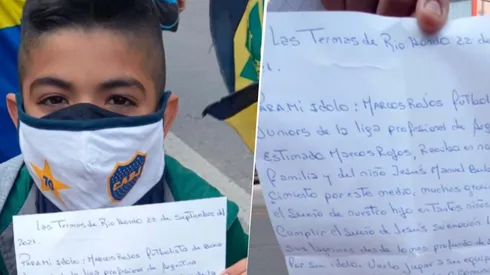 CABJ
Las Termas de Rio Hondo 22 de Septiembre del
2021.
PARA MI Idolo: MARCOS ROJOS futbolista de Boca
de la liga profesional de Argentina
Las Termas de Rio Hondo 22 de
21.
PARA MI Idolo: MARCOS ROJOS futbol
Juniors de la liga profesional de Arge
Estimado Marcos Rojos, Reciba en no
familia y del niño Jesus Manuel
cimiento por este medio, muchas grac
el sueño de nuestro hijo en tantos niños
Cumplir el sueño de Jesus su
desde lo mas profundo de
por su idolo. Verlo Jugar a su equipo